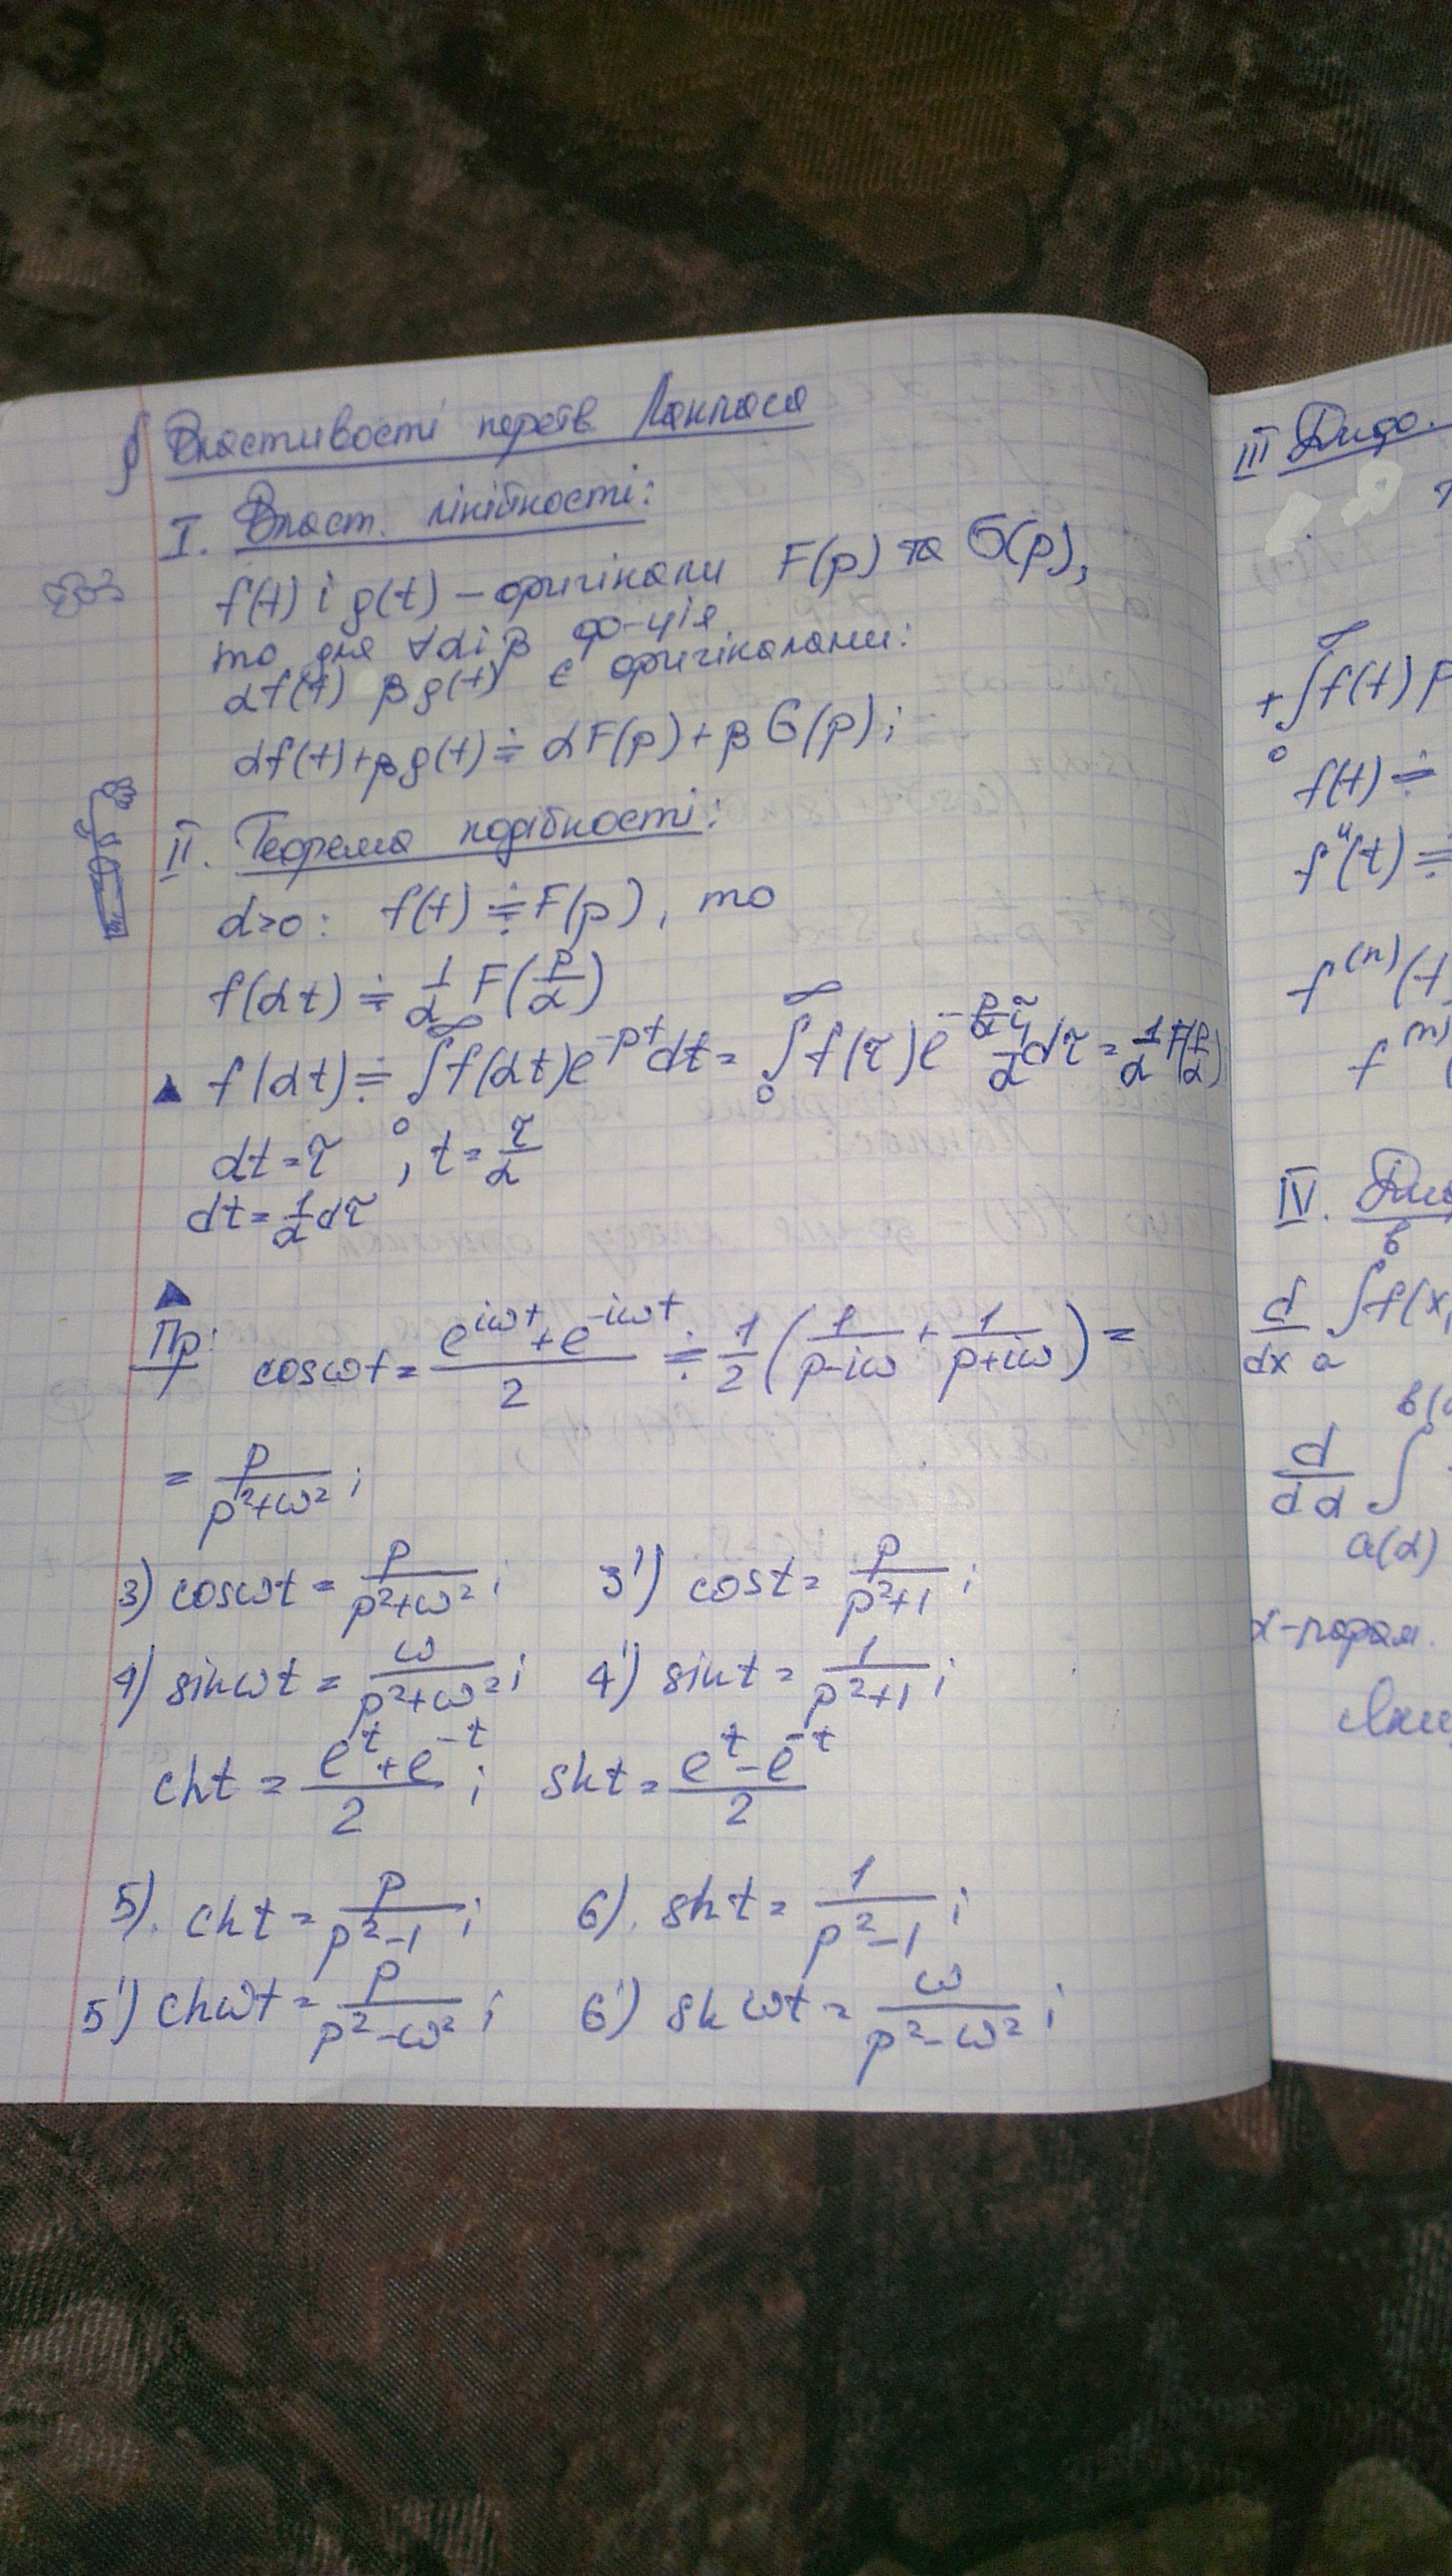 § Властивості перетв. Лапласа
I. Власт. лінійності:
f(t) і g(t) – оригінали F(p) та G(p),
то для ∀α і β ф-ція
αf(t) βg(t) є оригіналами:
αf(t)+βg(t) ≑ αF(p)+βG(p);
II. Теорема подібності:
α>0: f(t) ≑ F(p), то
f(αt) ≑ 1/α F(p/α)
▲ f(αt) ≑ ∫₀^∞ f(αt)e^(-pt)dt = ∫₀^∞ f(τ)e^(-p/α τ) 1/α dτ = 1/α F(p/α)
αt=τ , t=τ/α
dt=1/α dτ
▲
Пр: cosωt = (e^(iωt)+e^(-iωt))/2 ≑ 1/2 (1/(p-iω) + 1/(p+iω)) =
= p/(p²+ω²);
3) cosωt = p/(p²+ω²); 3') cost = p/(p²+1);
4) sinωt = ω/(p²+ω²); 4') sint = 1/(p²+1);
cht = (e^t+e^(-t))/2; sht = (e^t-e^(-t))/2
5). cht = p/(p²-1); 6). sht = 1/(p²-1);
5') chωt = p/(p²-ω²); 6') shωt = ω/(p²-ω²);
III
+∫₀^∞ f(t)p
f(t) ≑
f''(t) ≑
f^(n)(t
f^(n)(
IV.
d/dx ∫ₐ^в f(x,
d/dα ∫
a(α)
α-парам.